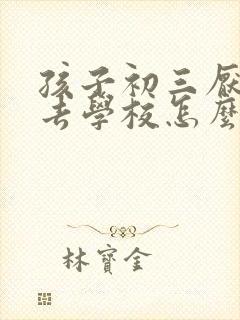 孩子初三厭
去學校怎麼
林寶金